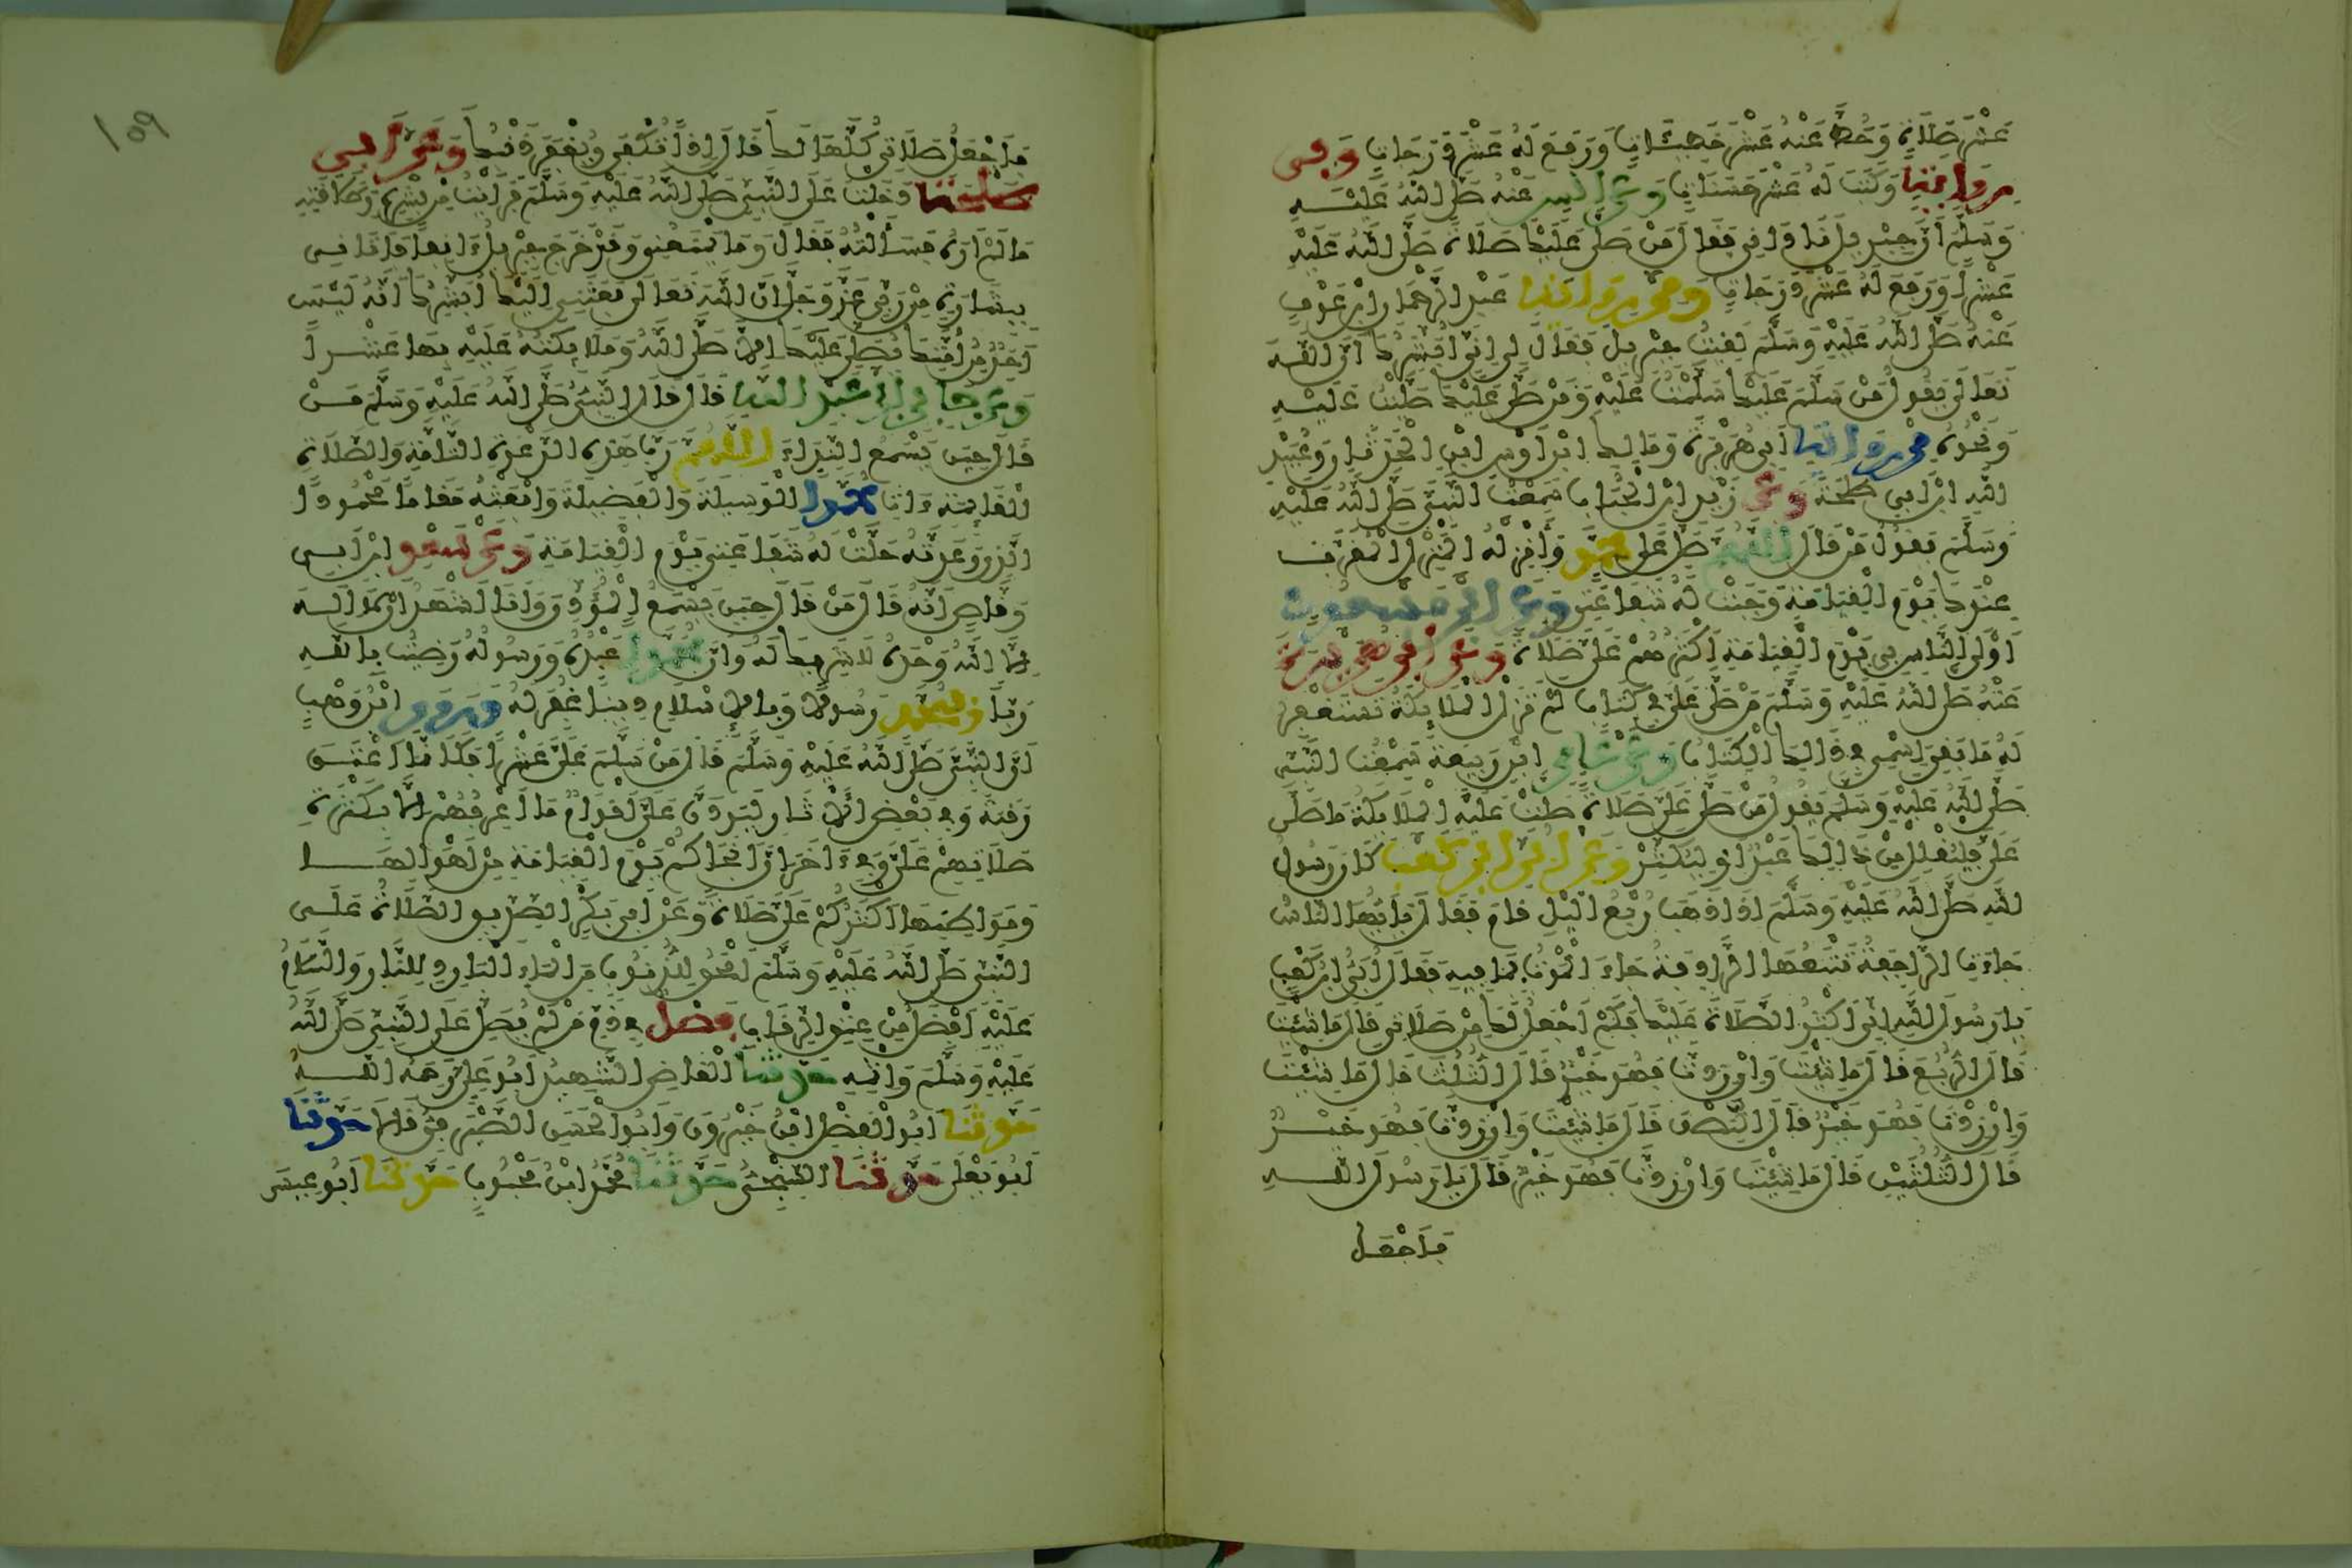 عَشْرَ صَلَاةٍ وَحُطَّ عَنْهُ عَشْرَ خَطِيئَاتٍ وَرَفَعَ لَهُ عَشْرَ دَرَجَاتٍ وَفِي
رِوَايَةٍ وَكَتَبَ لَهُ عَشْرَ حَسَنَاتٍ وَعَنْ أَنَسٍ عَنْهُ صَلَّى اللَّهُ عَلَيْهِ
وَسَلَّمَ أَنَّ جِبْرِيلَ نَادَانِي فَقَالَ مَنْ صَلَّى عَلَيْكَ صَلَاةً صَلَّى اللَّهُ عَلَيْهِ
عَشْرًا وَرَفَعَ لَهُ عَشْرَ دَرَجَاتٍ وَمِنْ رِوَايَةِ عَبْدِ الرَّحْمَانِ ابْنِ عَوْفٍ
عَنْهُ صَلَّى اللَّهُ عَلَيْهِ وَسَلَّمَ لَقِيتُ جِبْرِيلَ فَقَالَ لِي إِنِّي أُبَشِّرُكَ أَنَّ اللَّهَ
تَعَالَى يَقُولُ مَنْ سَلَّمَ عَلَيْكَ سَلَّمْتُ عَلَيْهِ وَمَنْ صَلَّى عَلَيْكَ صَلَّيْتُ عَلَيْهِ
وَنَحْوُهُ مِنْ رِوَايَةِ أَبِي هُرَيْرَةَ وَمَالِكِ ابْنِ أَوْسِ ابْنِ الْحَدَثَانِ وَعُبَيْدِ
اللَّهِ ابْنِ أَبِي طَلْحَةَ وَعَنْ زَيْدِ ابْنِ الْحُبَابِ سَمِعْتُ النَّبِيَّ صَلَّى اللَّهُ عَلَيْهِ
وَسَلَّمَ يَقُولُ مَنْ قَالَ اللَّهُمَّ صَلِّ عَلَى مُحَمَّدٍ وَأَنْزِلْهُ الْمَنْزِلَ الْمُقَرَّبَ
عِنْدَكَ يَوْمَ الْقِيَامَةِ وَجَبَتْ لَهُ شَفَاعَتِي وَعَنِ ابْنِ مَسْعُودٍ
أَوْلَى النَّاسِ بِي يَوْمَ الْقِيَامَةِ أَكْثَرُهُمْ عَلَيَّ صَلَاةً وَعَنْ أَبِي هُرَيْرَةَ
عَنْهُ صَلَّى اللَّهُ عَلَيْهِ وَسَلَّمَ مَنْ صَلَّى عَلَيَّ فِي كِتَابٍ لَمْ تَزَلِ الْمَلَائِكَةُ تَسْتَغْفِرُ
لَهُ مَا بَقِيَ اسْمِي فِي ذَالِكَ الْكِتَابِ وَعَنْ عَامِرِ ابْنِ رَبِيعَةَ سَمِعْتُ النَّبِيَّ
صَلَّى اللَّهُ عَلَيْهِ وَسَلَّمَ يَقُولُ مَنْ صَلَّى عَلَيَّ صَلَاةً صَلَّتْ عَلَيْهِ الْمَلَائِكَةُ مَا صَلَّى
عَلَيَّ فَلْيُقْلِلْ مِنْ ذَالِكَ عَبْدٌ أَوْ لِيُكْثِرْ وَعَنْ أُبَيِّ ابْنِ كَعْبٍ كَانَ رَسُولُ
اللَّهِ صَلَّى اللَّهُ عَلَيْهِ وَسَلَّمَ إِذَا ذَهَبَ رُبْعُ اللَّيْلِ قَامَ فَقَالَ يَا أَيُّهَا النَّاسُ
جَاءَتِ الرَّاجِفَةُ تَتْبَعُهَا الرَّادِفَةُ جَاءَ الْمَوْتُ بِمَا فِيهِ فَقَالَ أُبَيُّ ابْنُ كَعْبٍ
يَا رَسُولَ اللَّهِ إِنِّي أُكْثِرُ الصَّلَاةَ عَلَيْكَ فَكَمْ أَجْعَلُ لَكَ مِنْ صَلَاتِي قَالَ مَا شِئْتَ
قَالَ الرُّبُعَ قَالَ مَا شِئْتَ وَإِنْ زِدْتَ فَهُوَ خَيْرٌ قَالَ الثُّلُثَ قَالَ مَا شِئْتَ
وَإِنْ زِدْتَ فَهُوَ خَيْرٌ قَالَ النِّصْفَ قَالَ مَا شِئْتَ وَإِنْ زِدْتَ فَهُوَ خَيْرٌ
قَالَ الثُّلُثَيْنِ قَالَ مَا شِئْتَ وَإِنْ زِدْتَ فَهُوَ خَيْرٌ قَالَ يَا رَسُولَ اللَّهِ
فَأَجْعَلُ
١٥٩
فَأَجْعَلُ صَلَاتِي كُلَّهَا لَكَ قَالَ إِذًا تُكْفَى وَيُغْفَرَ ذَنْبُكَ وَعَنْ أَبِي
طَلْحَةَ دَخَلْتُ عَلَى النَّبِيِّ صَلَّى اللَّهُ عَلَيْهِ وَسَلَّمَ فَرَأَيْتُ مِنْ بِشْرِهِ وَطَلَاقَتِهِ
مَا لَمْ أَرَهُ فَسَأَلْتُهُ فَقَالَ وَمَا يَمْنَعُنِي وَقَدْ خَرَجَ جِبْرِيلُ ءَانِفًا فَأَتَانِي
بِبِشَارَةٍ مِنْ رَبِّي عَزَّ وَجَلَّ إِنَّ اللَّهَ تَعَالَى بَعَثَنِي إِلَيْكَ أُبَشِّرُكَ أَنَّهُ لَيْسَ
أَحَدٌ مِنْ أُمَّتِكَ يُصَلِّي عَلَيْكَ إِلَّا صَلَّى اللَّهُ وَمَلَائِكَتُهُ عَلَيْهِ بِهَا عَشْرًا
وَعَنْ جَابِرِ ابْنِ عَبْدِ اللَّهِ قَالَ قَالَ النَّبِيُّ صَلَّى اللَّهُ عَلَيْهِ وَسَلَّمَ مَنْ
قَالَ حِينَ يَسْمَعُ النِّدَاءَ اللَّهُمَّ رَبَّ هَذِهِ الدَّعْوَةِ التَّامَّةِ وَالصَّلَاةِ
الْقَائِمَةِ ءَاتِ مُحَمَّدًا الْوَسِيلَةَ وَالْفَضِيلَةَ وَابْعَثْهُ مَقَامًا مَحْمُودًا
الَّذِي وَعَدْتَهُ حَلَّتْ لَهُ شَفَاعَتِي يَوْمَ الْقِيَامَةِ وَعَنْ سَعْدِ ابْنِ أَبِي
وَقَّاصٍ أَنَّهُ قَالَ مَنْ قَالَ حِينَ يَسْمَعُ الْمُؤَذِّنَ وَأَنَا أَشْهَدُ أَنْ لَا إِلَهَ
إِلَّا اللَّهُ وَحْدَهُ لَا شَرِيكَ لَهُ وَأَنَّ مُحَمَّدًا عَبْدُهُ وَرَسُولُهُ رَضِيتُ بِاللَّهِ
رَبًّا وَبِمُحَمَّدٍ رَسُولًا وَبِالْإِسْلَامِ دِينًا غُفِرَ لَهُ وَرَوَى ابْنُ وَهْبٍ
أَنَّ النَّبِيَّ صَلَّى اللَّهُ عَلَيْهِ وَسَلَّمَ قَالَ مَنْ سَلَّمَ عَلَيَّ عَشْرًا فَكَأَنَّمَا أَعْتَقَ
رَقَبَةً وَفِي بَعْضِ الْأَثَارِ لَيَرِدَنَّ عَلَيَّ أَقْوَامٌ مَا أَعْرِفُهُمْ إِلَّا بِكَثْرَةِ
صَلَاتِهِمْ عَلَيَّ وَفِي ءَاخَرَ إِنَّ أَنْجَاكُمْ يَوْمَ الْقِيَامَةِ مِنْ أَهْوَالِهَا
وَمَوَاطِنِهَا أَكْثَرُكُمْ عَلَيَّ صَلَاةً وَعَنْ أَبِي بَكْرٍ الصِّدِّيقِ الصَّلَاةُ عَلَى
النَّبِيِّ صَلَّى اللَّهُ عَلَيْهِ وَسَلَّمَ أَمْحَقُ لِلذُّنُوبِ مِنَ الْمَاءِ الْبَارِدِ لِلنَّارِ وَالسَّلَامُ
عَلَيْهِ أَفْضَلُ مِنْ عِتْقِ الرِّقَابِ فَصْلٌ فِي ذَمِّ مَنْ لَمْ يُصَلِّ عَلَى النَّبِيِّ صَلَّى اللَّهُ
عَلَيْهِ وَسَلَّمَ وَإِثْمِهِ حَدَّثَنَا الْقَاضِي الشَّهِيدُ أَبُو عَلِيٍّ رَحِمَهُ اللَّهُ
حَدَّثَنَا أَبُو الْفَضْلِ ابْنُ خَيْرُونَ وَأَبُو الْحُسَيْنِ الصَّيْرَفِيُّ قَالَا حَدَّثَنَا
أَبُو يَعْلَى حَدَّثَنَا السِّنْجِيُّ حَدَّثَنَا مُحَمَّدُ ابْنُ مَحْبُوبٍ حَدَّثَنَا أَبُو عِيسَى